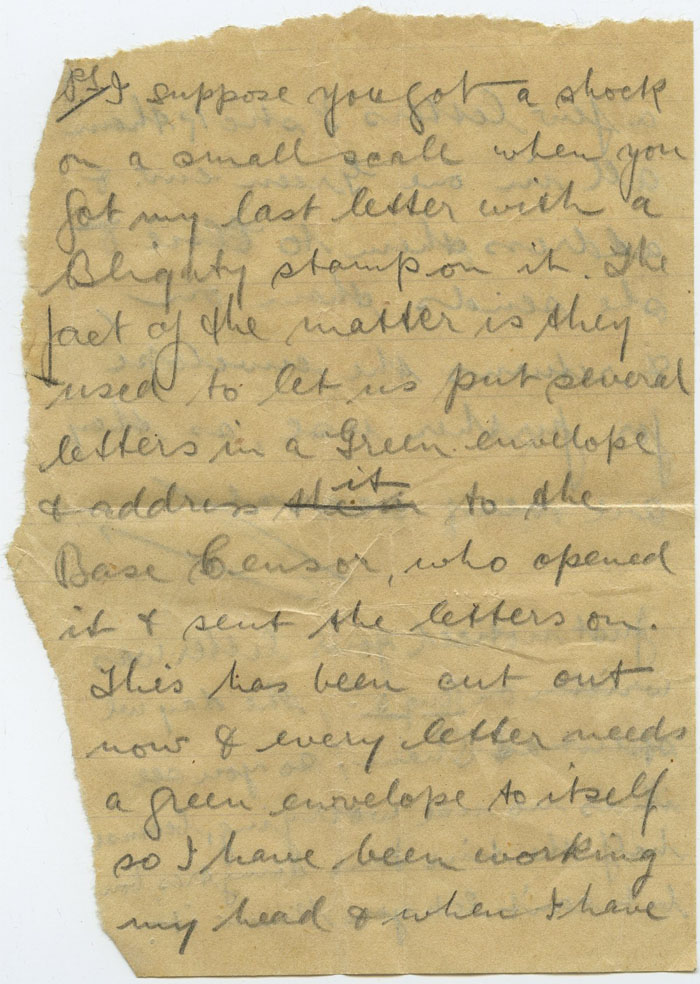 P.S. I suppose you got a shock
on a small scale when you
got my last letter with a
Blighty stamp on it. The
fact of the matter is they
used to let us put several
letters in a Green envelope
& address it to the
Base Censor, who opened
it & sent the letters on.
This has been cut out
now & every letter needs
a green envelope to itself
so I have been working
my head & when I have